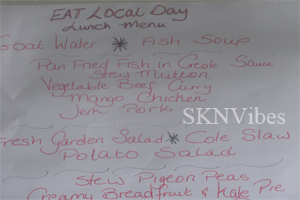 EAT LOCAL DAY
Lunch Menu
Goat Water * Fish Soup
Pan Fried Fish in Creole Sauce
Stew Mutton
Vegetable Beef Curry
Mango Chicken
Jerk Pork
SKNVibes
Fresh Garden Salad * Cole Slaw
Potato Salad
Stew Pigeon Peas
Creamy Breadfruit & Kale Pie